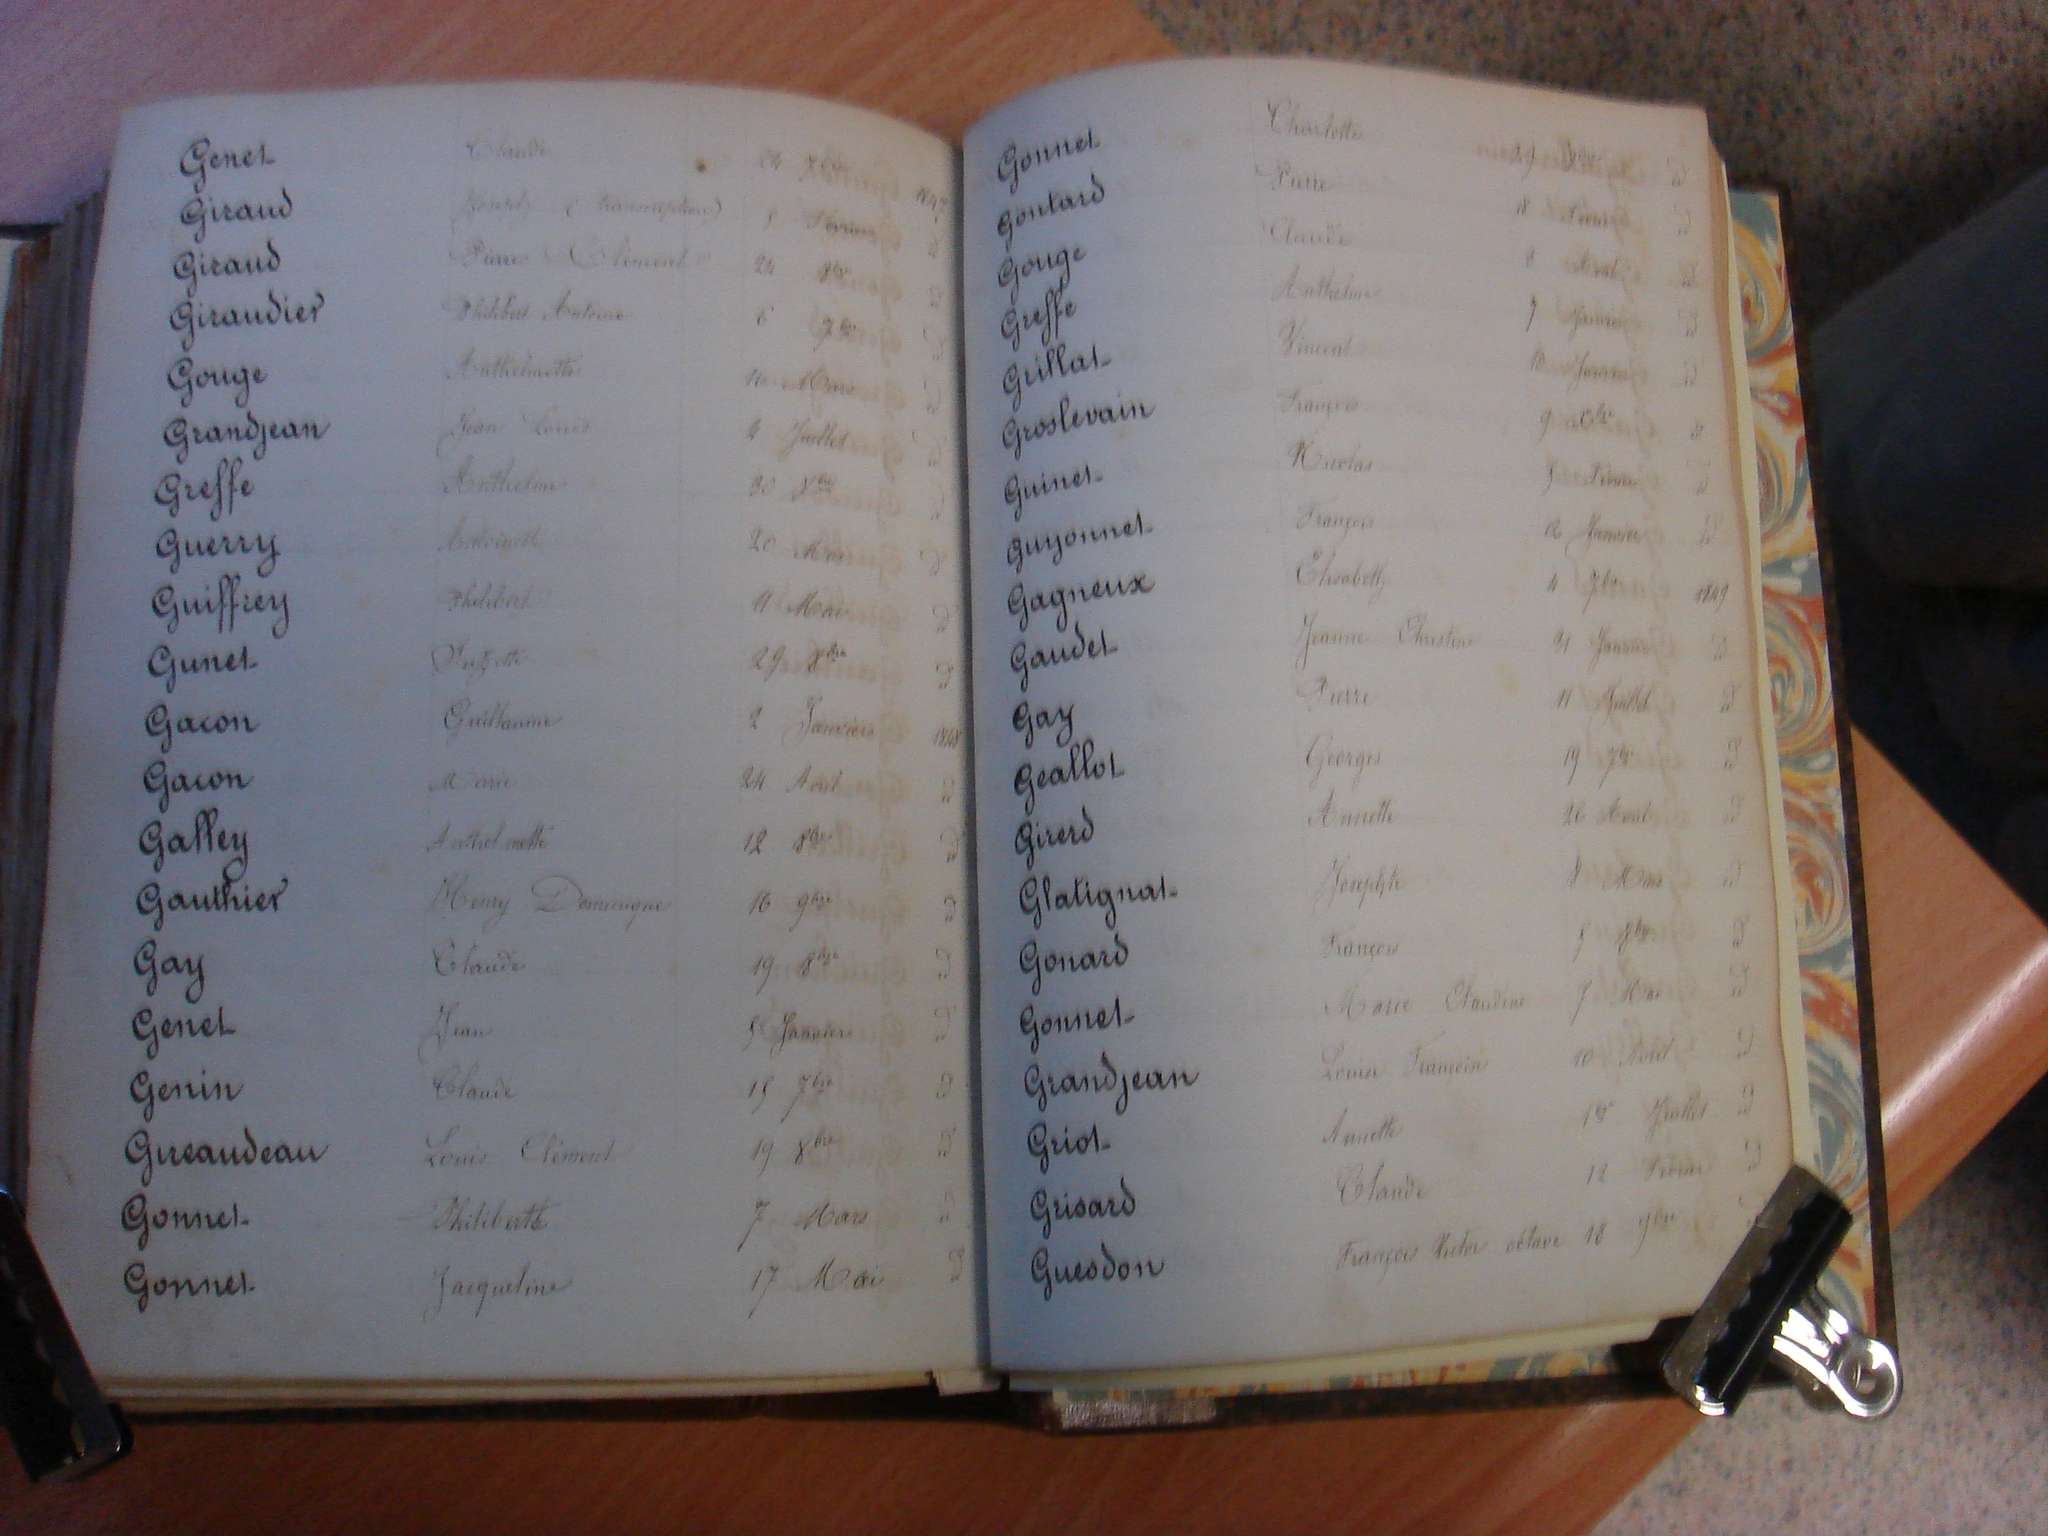 Genet Claude 24 8bre 1847
Giraud (transcription) 5 Février d
Giraud Pierre Clément 24 8bre d
Giraudier Philibert Antoine 6 7bre d
Gouge Anthelmette Mars d
Grandjean Jean Louis 2 Juillet d
Greffe Anthelme 30 8bre d
Guerry Antoinette 20 Mai d
Guiffrey Philibert 11 Mai d
Gunet 29 8bre d
Gacon Guillaume 2 Janvier 1848
Gacon Marie 24 Août d
Galley Anthelmette 12 8bre d
Gauthier Henry Dominique 16 9bre d
Gay Claude 19 8bre d
Genet Jean 5 Janvier d
Genin Claude 15 7bre d
Gireaudeau Louis Clément 19 8bre d
Gonnet Philiberte 7 Mars d
Gonnet Jacqueline 17 Mai d
Gonnet Charlotte 29 d
Gontard Pierre 18 Février d
Gouge Claude 8 d
Greffe Anthelme 7 Janvier d
Grillat Vincent Janvier d
Groslevain François 9 d
Guinet Nicolas 5 Février d
Guyonnet François Janvier d
Gagneux Elisabeth 4 7bre 1849
Gaudet Jeanne Christine 21 Janvier d
Gay Pierre 11 Juillet d
Geallot Georges 19 7bre d
Girerd Annette 26 Août d
Glatignat Josephte 8 Mai d
Gonard François 5 8bre d
Gonnet Marie Claudine 7 Mai d
Grandjean Louis François 10 Août d
Griot Annette Juillet d
Grisard Claude 12 Février d
Guesdon François Victor octave 18 9bre d